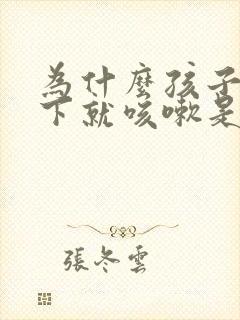 為什麼孩子
下就咳嗽是
張冬雲